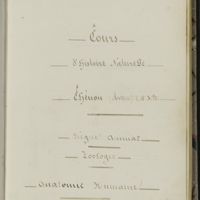 Cours
d'histoire Naturelle
Thénon
Règne Animal
Zoologie
Anatomie Humaine